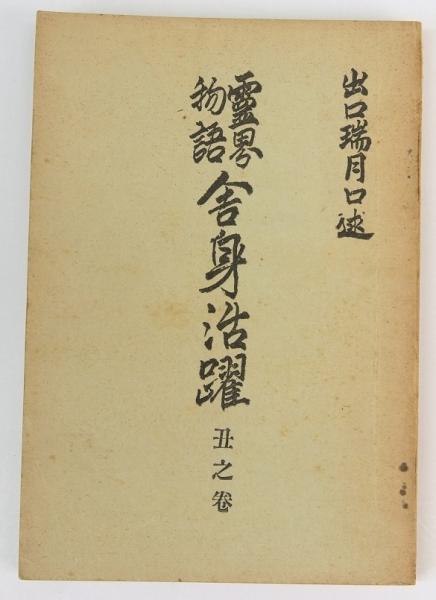 出口瑞月口述
靈界物語 舎身活躍 丑之卷